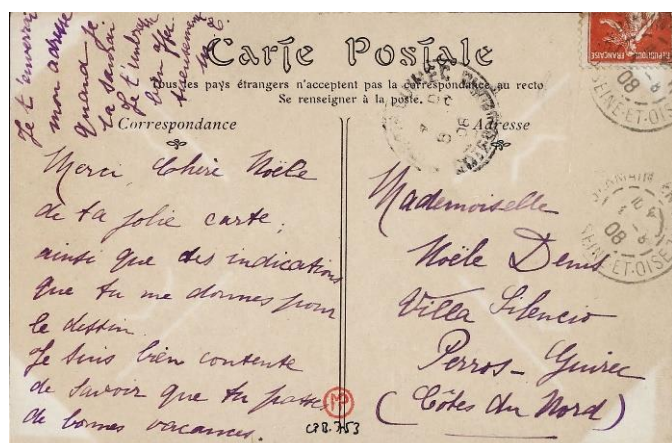 Je t'enverrai
mon adresse
quand je
la saurai
Je t'embrasse
bien affectueusement
Carte Postale
Tous les pays étrangers n'acceptent pas la correspondance au recto
Se renseigner à la poste.
Correspondance
Merci, Chère Noële
de ta jolie carte,
ainsi que des indications
que tu me donnes pour
le dessin.
Je suis bien contente
de savoir que tu passes
de bonnes vacances.
Adresse
Mademoiselle
Noële Denis
Villa Silencio
Perros-Guirec
(Côtes du Nord)
08
SEINE-ET-OISE
GERMAIN EN
08
SEINE-ET-OISE
CPB.753